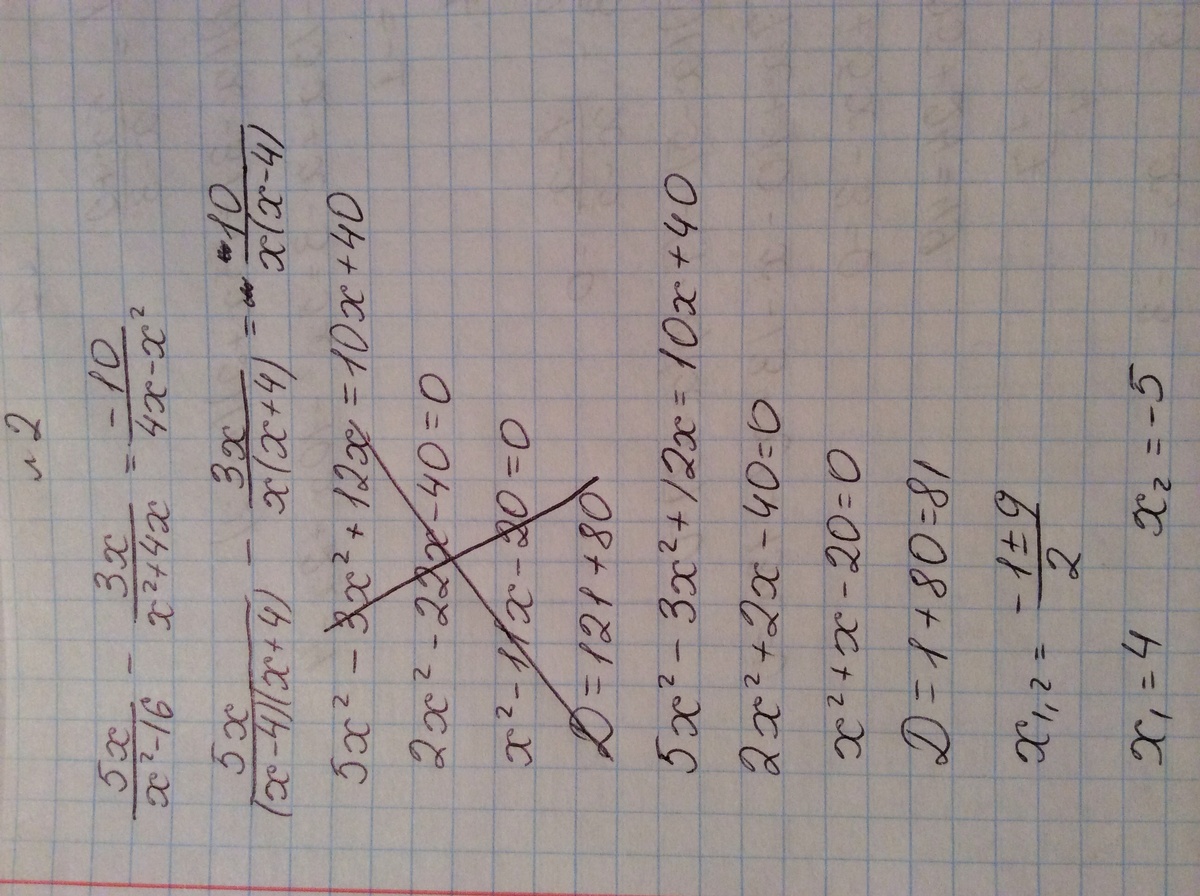 № 2
5x/(x²-16) - 3x/(x²+4x) = -10/(4x-x²)
5x/((x-4)(x+4)) - 3x/(x(x+4)) = 10/(x(x-4))
5x² - 3x² + 12x = 10x + 40
2x² - 22x - 40 = 0
x² - 11x - 20 = 0
D = 121 + 80
5x² - 3x² + 12x = 10x + 40
2x² + 2x - 40 = 0
x² + x - 20 = 0
D = 1 + 80 = 81
x₁,₂ = (-1 ± 9)/2
x₁ = 4 x₂ = -5